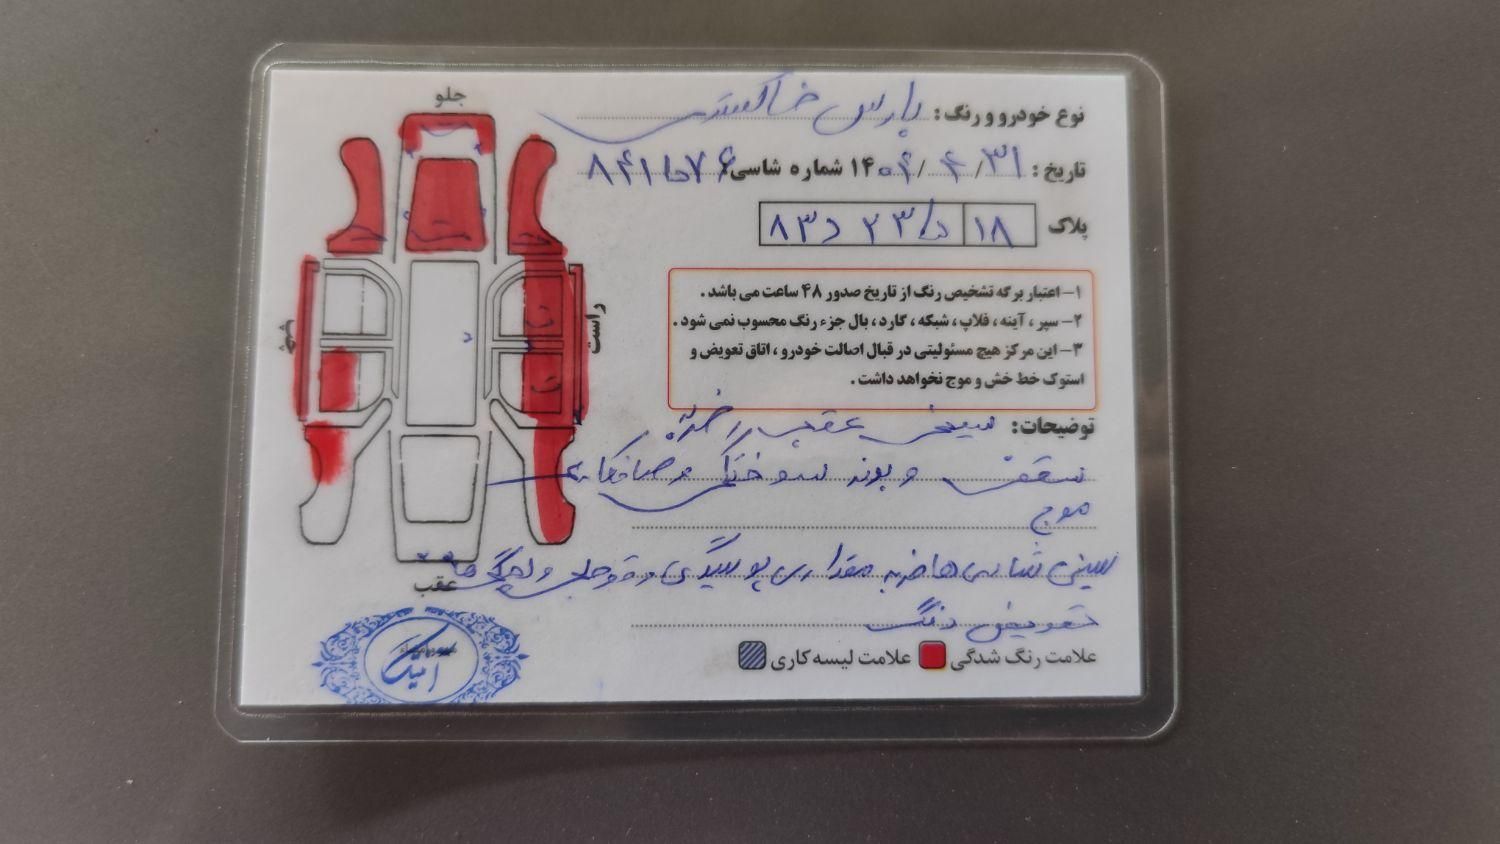 جلو
نوع خودرو و رنگ: پارس خاکستری
تاریخ: ۱۴۰۴/۴/۳۱ شماره شاسی: ۸۴۱۵۷۶
پلاک ۱۸ ۲۳ د ۸۳
۱- اعتبار برگه تشخیص رنگ از تاریخ صدور ۴۸ ساعت می باشد.
۲- سپر، آینه، فلاپ، شبکه، گارد، بال جزء رنگ محسوب نمی شود.
۳- این مرکز هیچ مسئولیتی در قبال اصالت خودرو، اتاق تعویض و
استوک خط خش و موج نخواهد داشت.
راست
چپ
توضیحات: سینی عقب ضربه
سقف و سوختگی صافکاری
موج
سینی شاسی ها ضربه مقداری پوسیدگی
عقب
تعویض رنگ
علامت رنگ شدگی علامت لیسه کاری